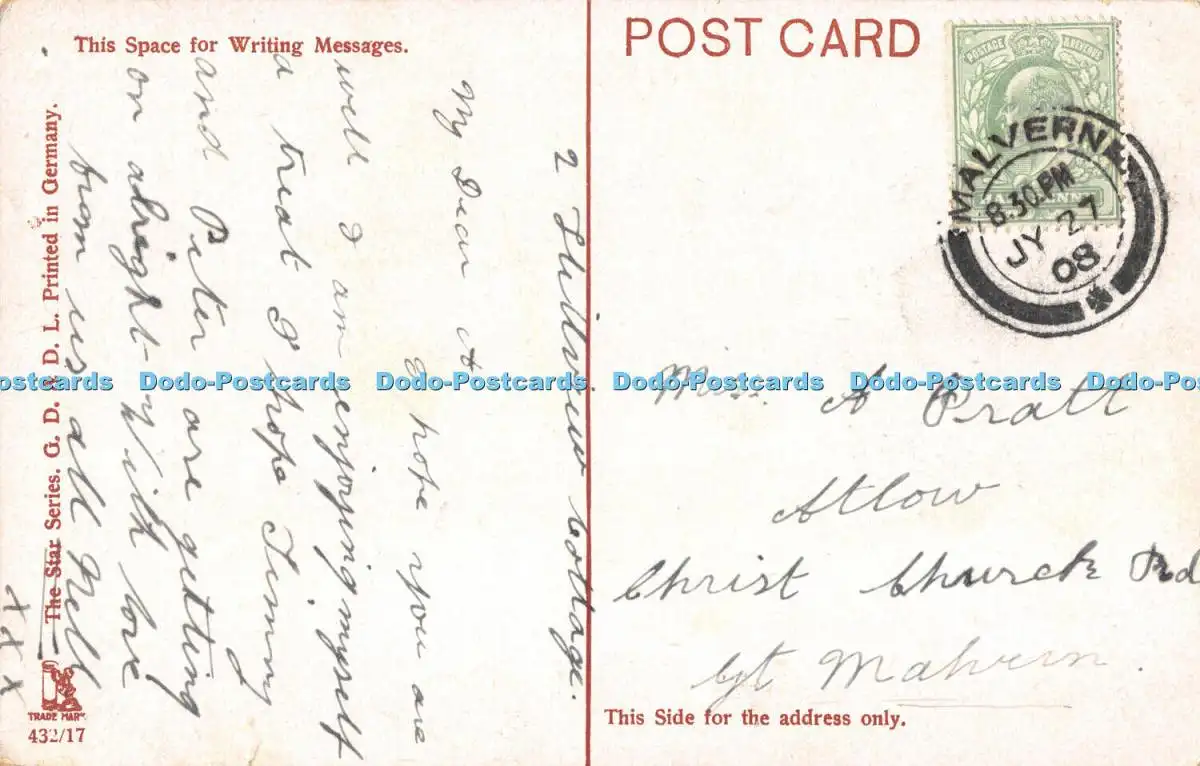 This Space for Writing Messages.
POST CARD
POSTAGE & REVENUE
HALFPENNY
MALVERN
8.30 PM
JY 27
08
2 Hillview Cottage.
My Dear A
I hope you are
well I am enjoying myself
a treat I hope Jimmy
and Peter are getting
on alright with love
from us all Nell
x x x
The Star Series. G. D. & D. L. Printed in Germany.
TRADE MARK
432/17
Miss. A Pratt
Atlow
Christ Church Rd
Gt Malvern.
This Side for the address only.
Dodo-Postcards Dodo-Postcards Dodo-Postcards Dodo-Postcards Dodo-Postcards Dodo-Postcards